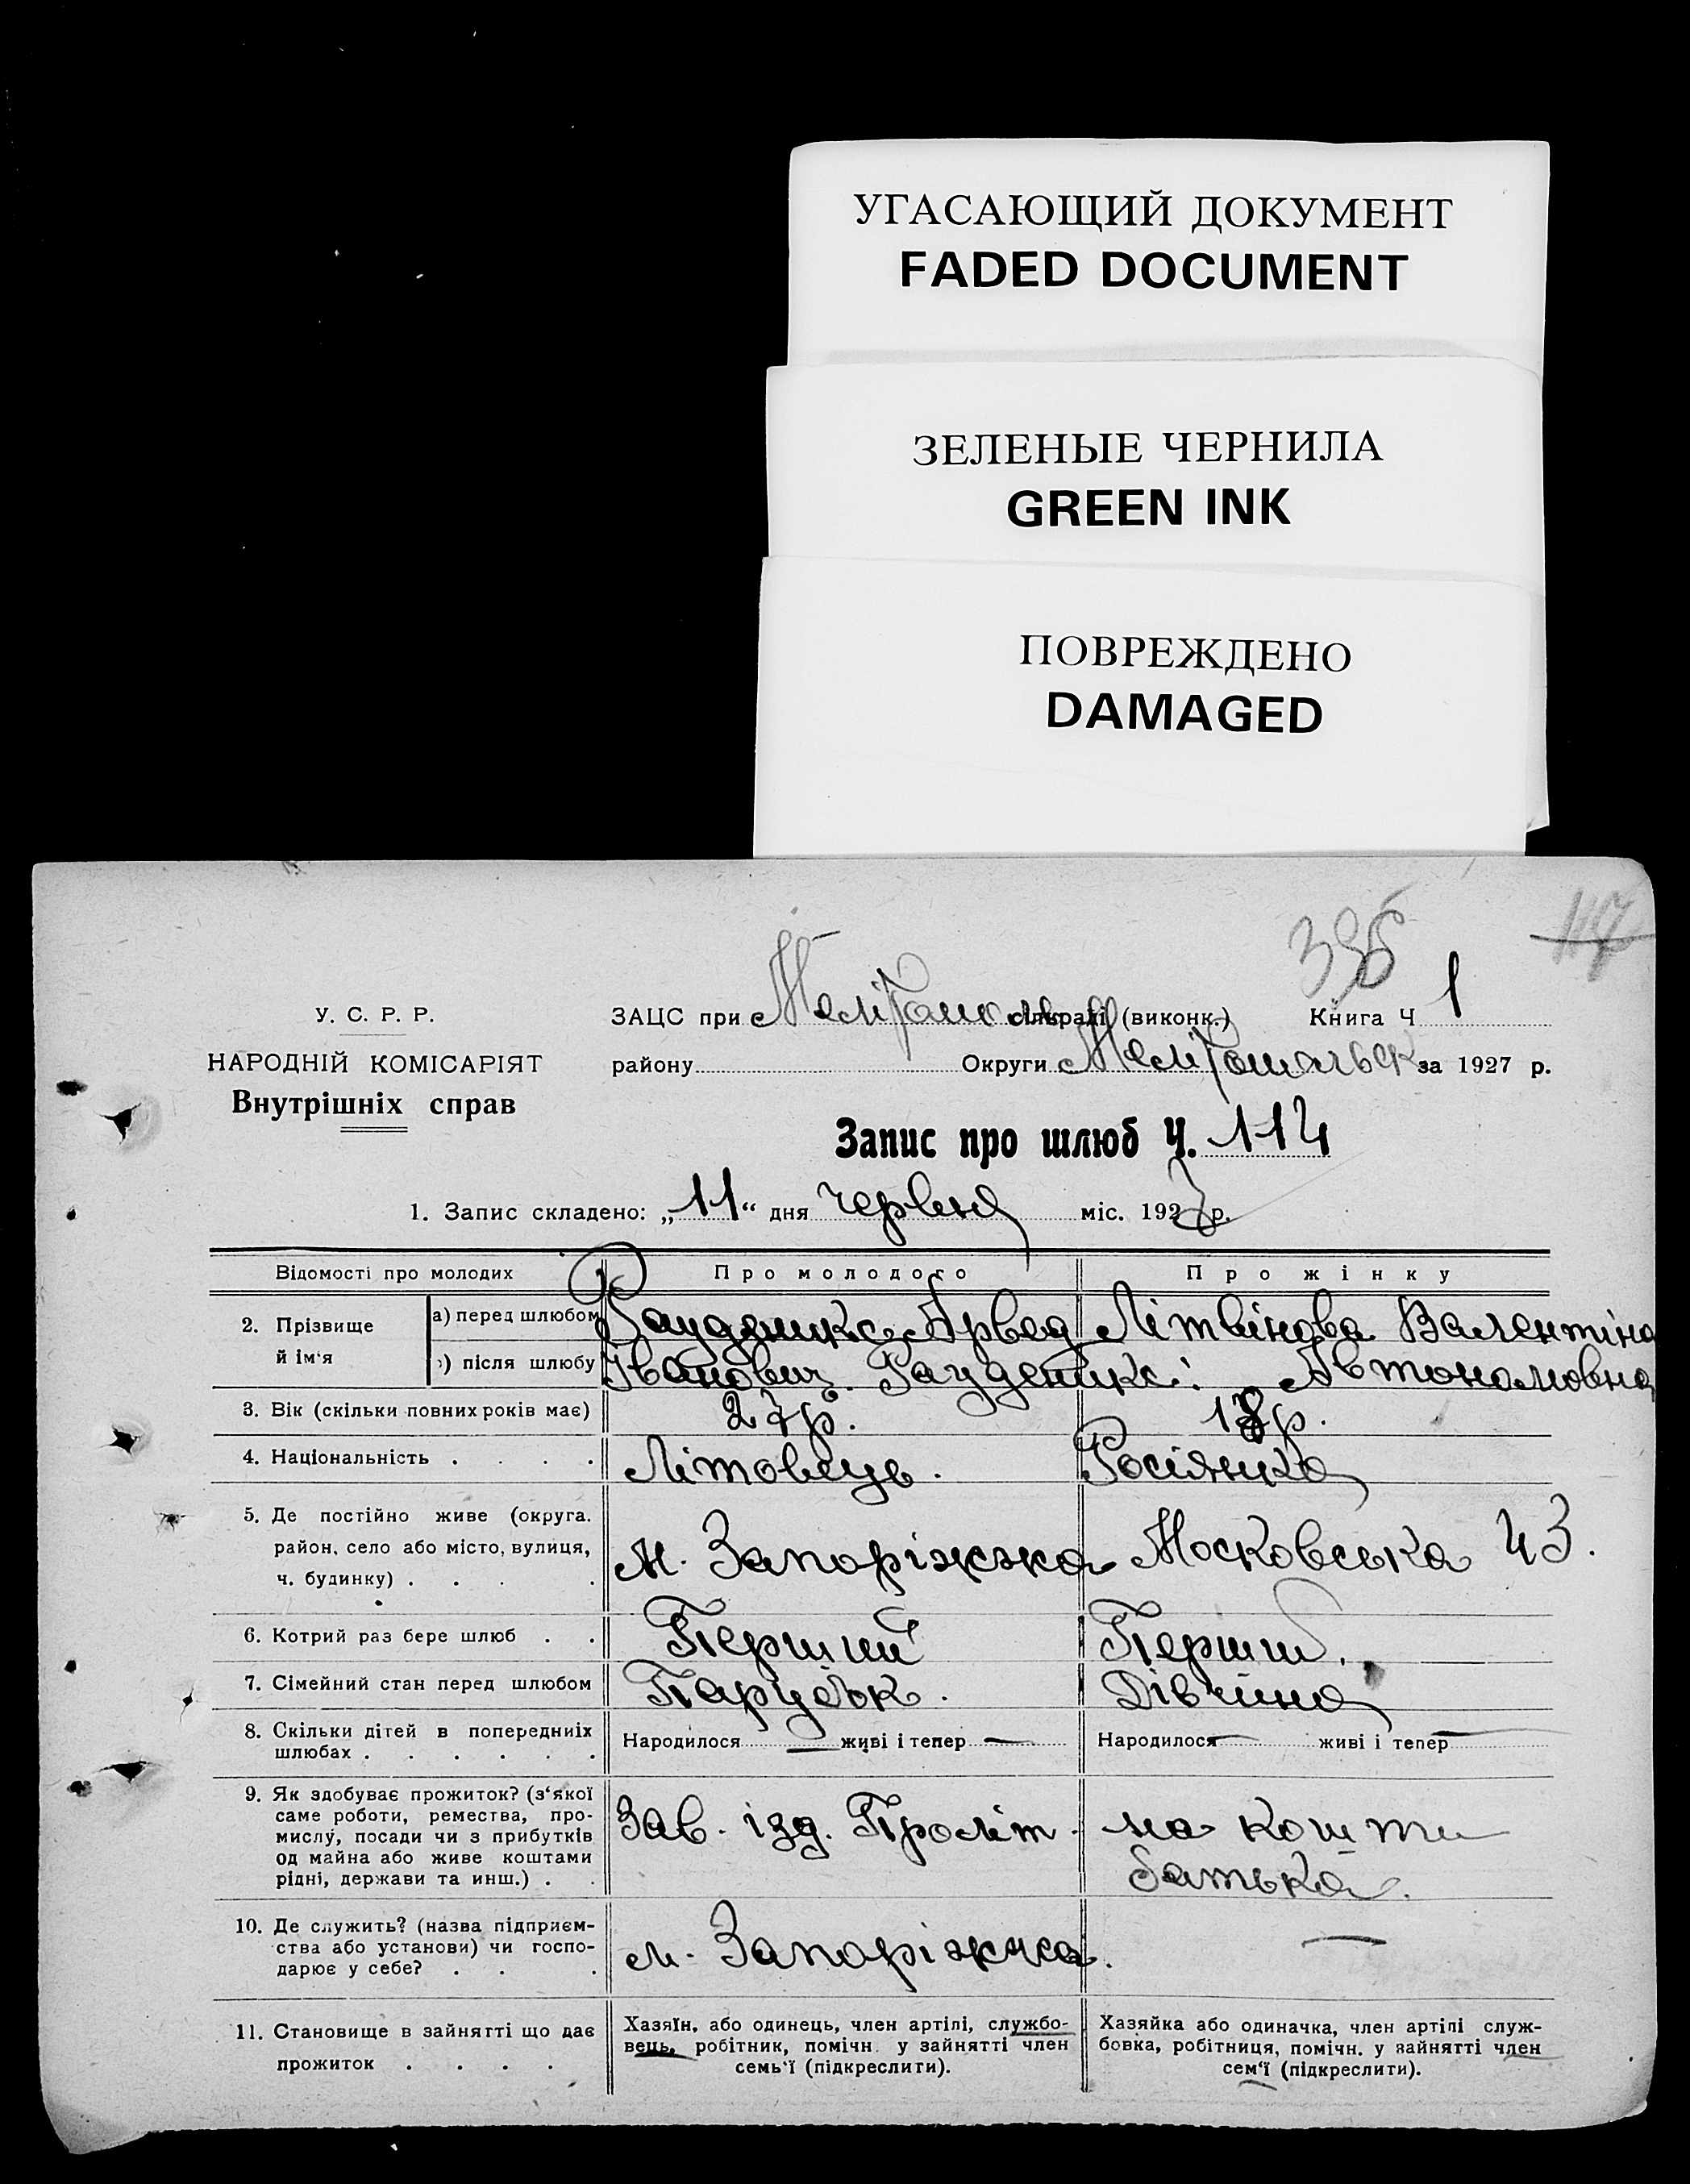 УГАСАЮЩИЙ ДОКУМЕНТ
FADED DOCUMENT
ЗЕЛЕНЫЕ ЧЕРНИЛА
GREEN INK
ПОВРЕЖДЕНО
DAMAGED
У. С. Р. Р.
НАРОДНІЙ КОМІСАРІЯТ
Внутрішніх справ
ЗАЦС при сільраді (виконк.) Книга Ч 1
району Округи за 1927 р.
Запис про шлюб Ч. 114
1. Запис складено: „11“ дня червня міс. 1927 р.
Відомості про молодих Про молодого Про жінку
2. Прізвище й ім'я
а) перед шлюбом Арвед Літвінова Валентіна
після шлюбу Іванович. Автономовна
3. Вік (скільки повних років має) 27 р. 18 р.
4. Національність . . . . Літовець. Росіянка
5. Де постійно живе (округа.
район, село або місто, вулиця,
ч. будинку) . . . .
м. Запоріжжа Московська 43.
6. Котрий раз бере шлюб . . Перший Перший.
7. Сімейний стан перед шлюбом Парубок. Дівчина
8. Скільки дітей в попередниіх
шлюбах . . . . . .
Народилося — живі і тепер — Народилося — живі і тепер —
9. Як здобуває прожиток? (з'якої
саме роботи, ремества, про-
мислу, посади чи з прибутків
од майна або живе коштами
рідні, держави та инш.) . .
Зав. ізд. Проліт. на кошти
батька.
10. Де служить? (назва підприєм-
ства або установи) чи госпо-
дарює у себе? . . .
м. Запоріжжа. —
11. Становище в зайнятті що дає
прожиток . . . .
Хазяїн, або одинець, член артілі, службо-
вець, робітник, помічн. у зайнятті член
семь'ї (підкреслити).
Хазяйка або одиначка, член артілі служ-
бовка, робітниця, помічн. у зайнятті член
сем'ї (підкреслити).